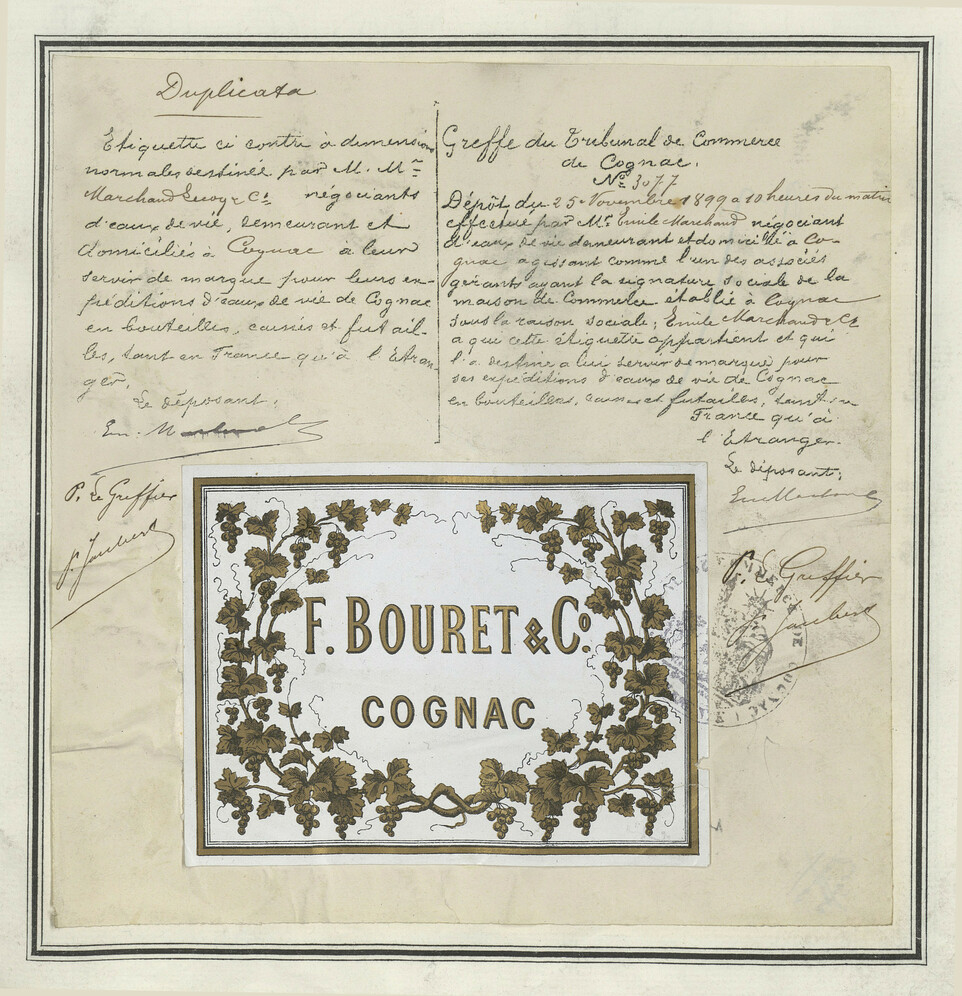 Duplicata
Etiquette ci contre à dimensions
normales destinée par M. M.rs
Marchand & Co négociants
d'eaux de vie, demeurant et
domiciliés à Cognac à leur
servir de marque pour leurs ex-
péditions d'eaux de vie de Cognac
en bouteilles, caisses et futail-
les, tant en France qu'à l'Etran-
ger.
Le déposant,
Em. Marchand
P. Le Greffier
P. Jaubert
Greffe du Tribunal de Commerce
de Cognac.
No. 3077
Dépôt du 25 Novembre 1899 a 10 heures du matin
effectué par Mr. Emile Marchand négociant
d'eaux de vie demeurant et domicilié à Co-
gnac agissant comme l'un des associés
gérants ayant la signature sociale de la
maison de Commerce établie à Cognac
sous la raison sociale; Emile Marchand & Co
a que cette étiquette appartient et qui
l'a destine a lui servir de marque pour
ses expéditions d'eaux de vie de Cognac
en bouteilles, caisses et futailles, tant en
France qu'à
l'Etranger.
Le déposant;
Em Marchand
P. Le Greffier
P. Jaubert
F. BOURET & Co.
COGNAC
COMMERCE DE COGNAC